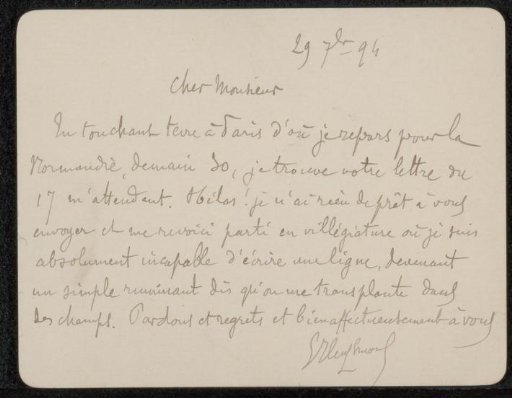 29 7bre 94
Cher Monsieur
En touchant terre à Paris d'où je repars pour la
Normandie, demain 30, je trouve votre lettre du
17 m'attendant. Hélas! je n'ai rien de prêt à vous
envoyer et me revoici parti en villégiature où je suis
absolument incapable d'écrire une ligne, devenant
un simple ruminant dès qu'on me transplante dans
les champs. Pardons et regrets et bien affectueusement à vous